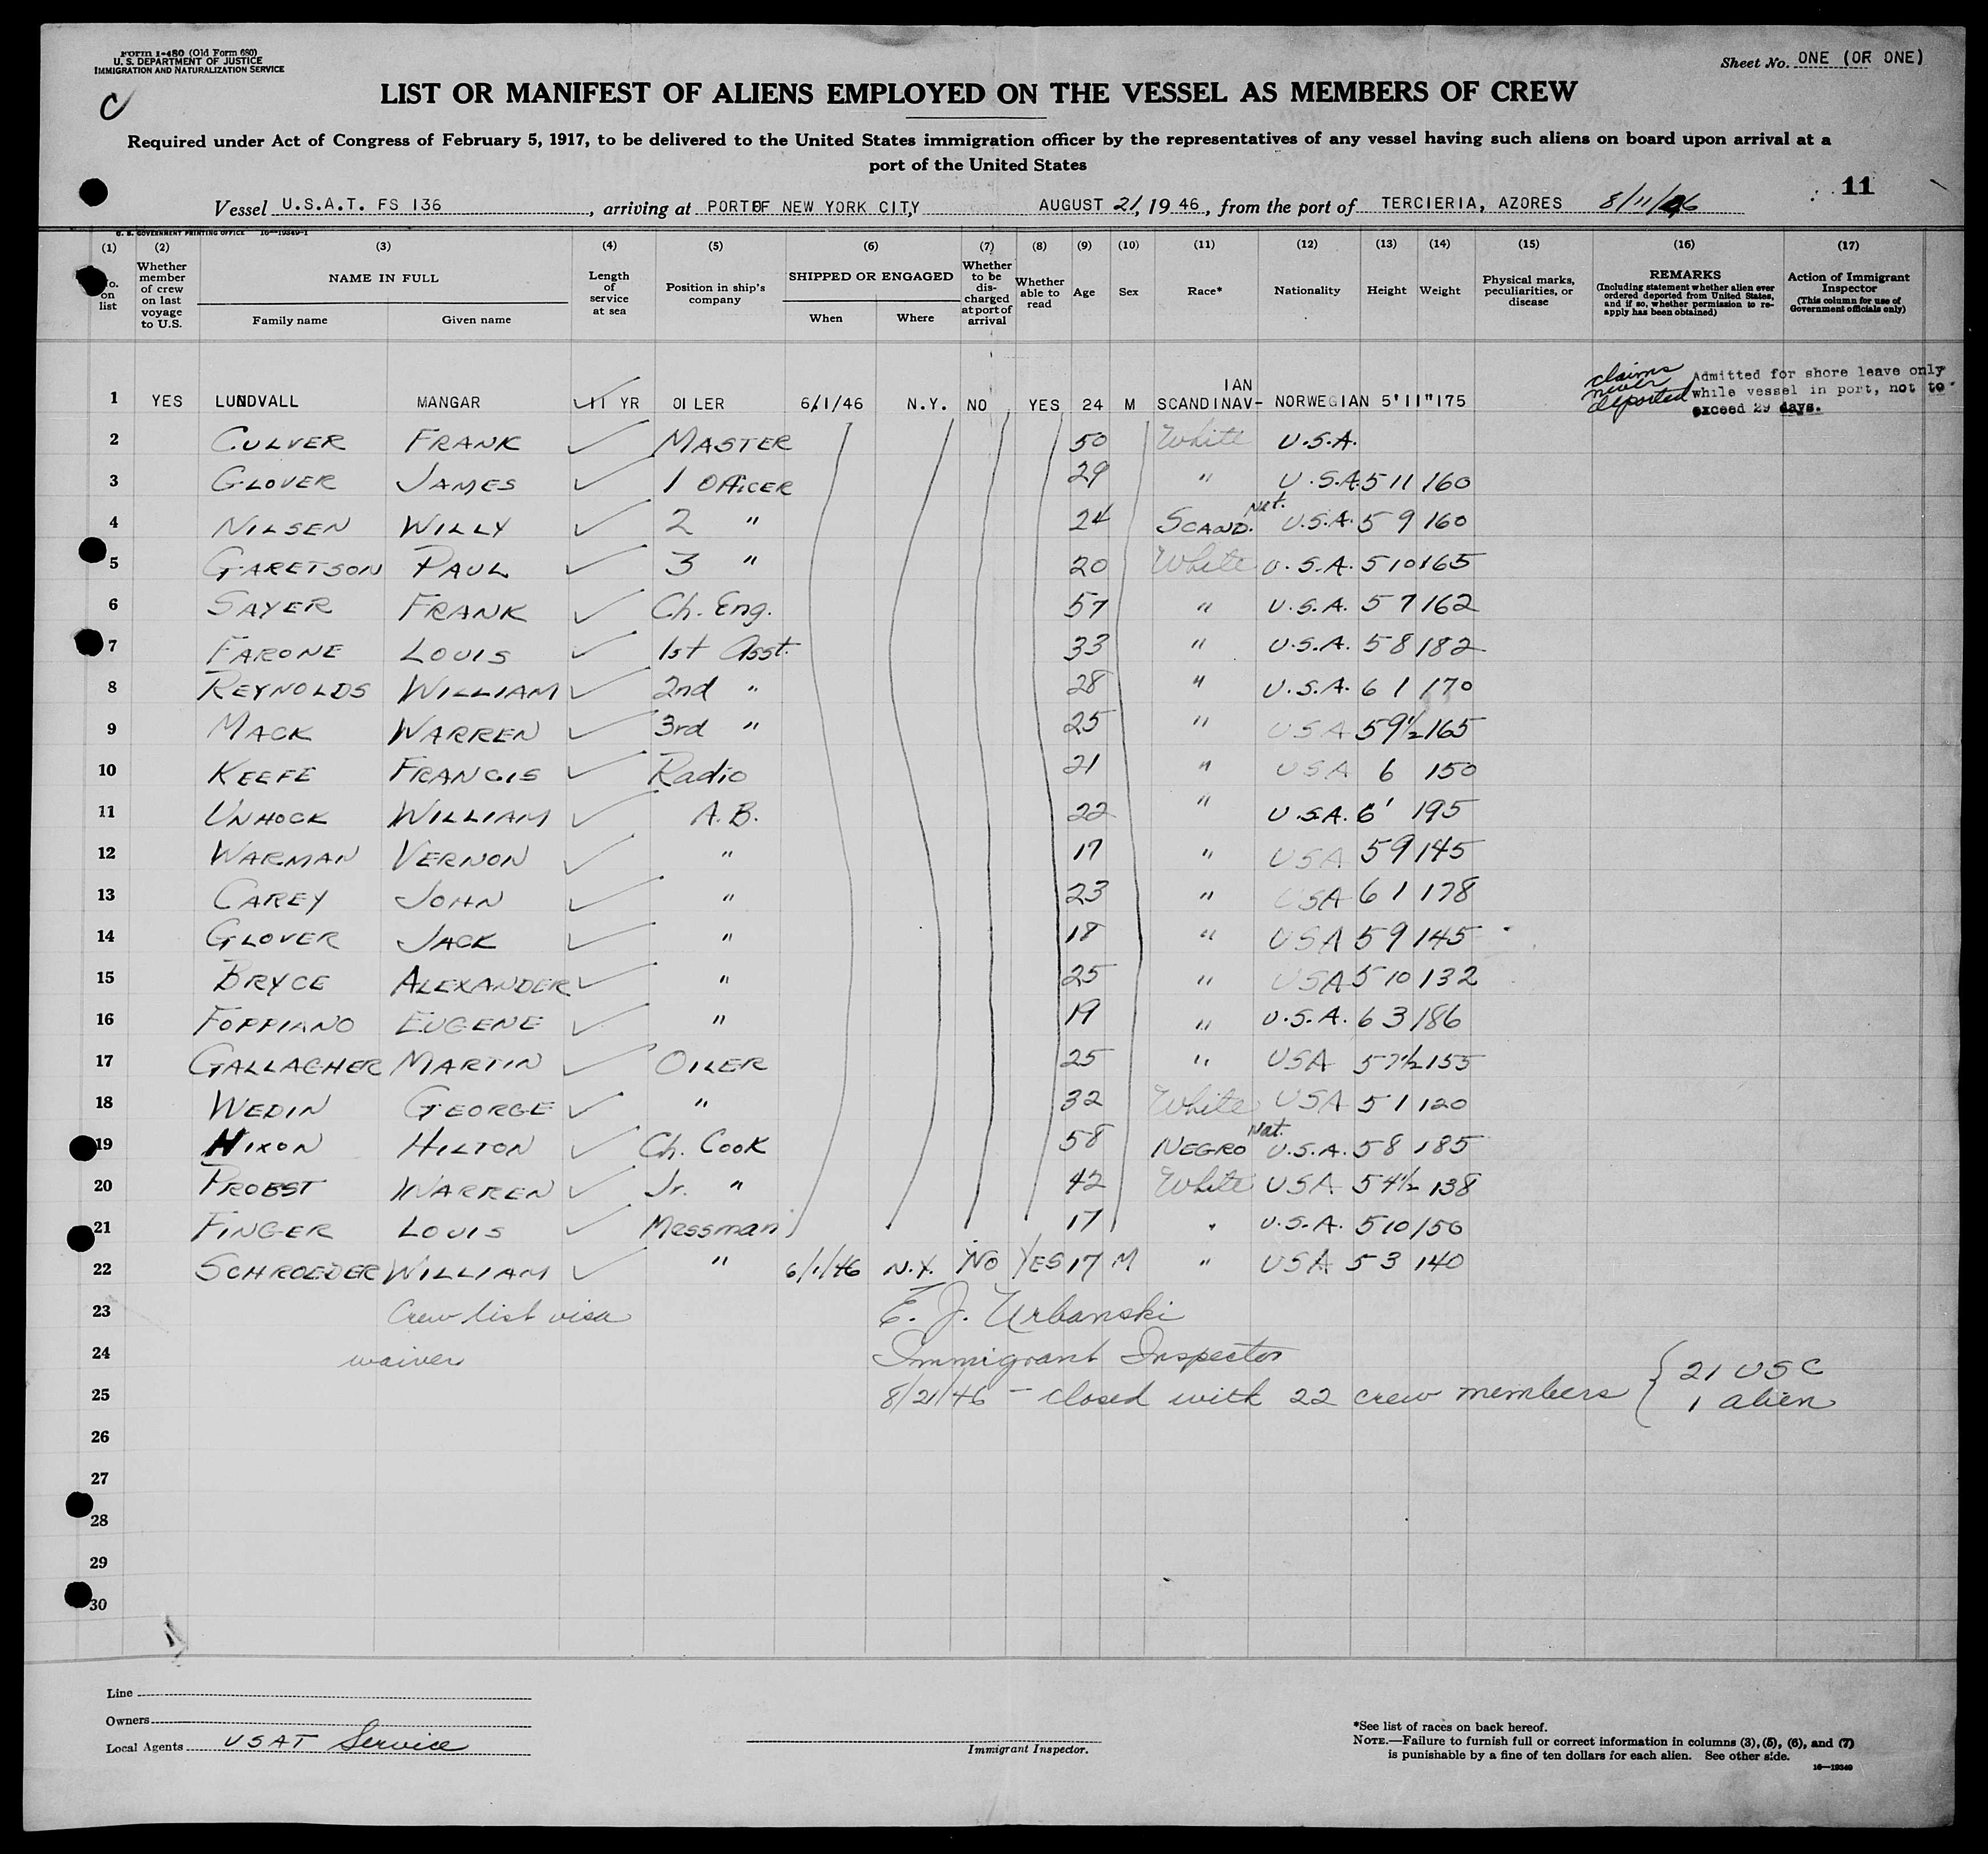 Form I-480 (Old Form 680)
U. S. DEPARTMENT OF JUSTICE
IMMIGRATION AND NATURALIZATION SERVICE
Sheet No. ONE (OR ONE)
C
LIST OR MANIFEST OF ALIENS EMPLOYED ON THE VESSEL AS MEMBERS OF CREW
Required under Act of Congress of February 5, 1917, to be delivered to the United States immigration officer by the representatives of any vessel having such aliens on board upon arrival at a
port of the United States
11
Vessel U.S.A.T. FS 136, arriving at PORT OF NEW YORK CITY, AUGUST 21, 1946, from the port of TERCIERIA, AZORES 8/11/46
U. S. GOVERNMENT PRINTING OFFICE 16—19349-1
(1) (2) (3) (4) (5) (6) (7) (8) (9) (10) (11) (12) (13) (14) (15) (16) (17)
No. on list
Whether member of crew on last voyage to U.S.
NAME IN FULL
Family name
Given name
Length of service at sea
Position in ship's company
SHIPPED OR ENGAGED
When
Where
Whether to be discharged at port of arrival
Whether able to read
Age
Sex
Race*
Nationality
Height
Weight
Physical marks, peculiarities, or disease
REMARKS
(Including statement whether alien ever ordered deported from United States, and if so, whether permission to re-apply has been obtained)
Action of Immigrant Inspector
(This column for use of Government officials only)
1 YES LUNDVALL MANGAR 11 YR OILER 6/1/46 N.Y. NO YES 24 M SCANDINAV-IAN NORWEGIAN 5'11" 175 claims never deported Admitted for shore leave only while vessel in port, not to exceed 29 days.
2 CULVER FRANK MASTER 50 White U.S.A.
3 GLOVER JAMES 1 OFFICER 29 " U.S.A. 5 11 160
4 NILSEN WILLY 2 " 24 SCAND. Nat. U.S.A. 5 9 160
5 GARETSON PAUL 3 " 20 White U.S.A. 5 10 165
6 SAYER FRANK Ch. Eng. 57 " U.S.A. 5 7 162
7 FARONE LOUIS 1st Asst. 33 " U.S.A. 5 8 182
8 REYNOLDS WILLIAM 2nd " 28 " U.S.A. 6 1 170
9 MACK WARREN 3rd " 25 " USA 5 9 1/2 165
10 KEEFE FRANCIS Radio 21 " USA 6 150
11 UNHOCK WILLIAM A.B. 22 " U.S.A. 6' 195
12 WARMAN VERNON " 17 " USA 5 9 145
13 CAREY JOHN " 23 " USA 6 1 178
14 GLOVER JACK " 18 " USA 5 9 145
15 BRYCE ALEXANDER " 25 " USA 5 10 132
16 FOPPIANO EUGENE " 19 " U.S.A. 6 3 186
17 GALLAGHER MARTIN OILER 25 " USA 5 7 1/2 155
18 WEDIN GEORGE " 32 White USA 5 1 120
19 NIXON HILTON Ch. COOK 58 NEGRO Nat. U.S.A. 5 8 185
20 PROBST WARREN Jr. " 42 White USA 5 4 1/2 138
21 FINGER LOUIS Messman 17 " U.S.A. 5 10 150
22 SCHROEDER WILLIAM " 6/1/46 N.Y. NO YES 17 M " USA 5 3 140
23 Crew list visa E. J. Urbanski
24 waiver Immigrant Inspector
25 8/21/46 - closed with 22 crew members { 21 USC
1 alien
26
27
28
29
30
Line
Owners
Local Agents USAT Service
Immigrant Inspector.
*See list of races on back hereof.
NOTE.—Failure to furnish full or correct information in columns (3), (5), (6), and (7)
is punishable by a fine of ten dollars for each alien. See other side.
16—19349